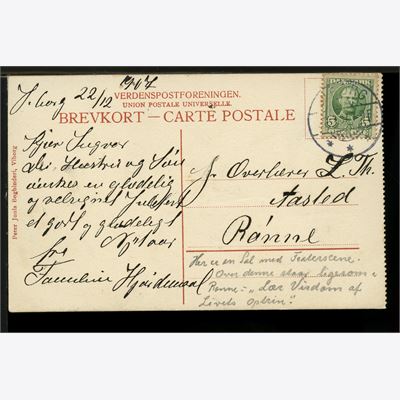 V.borg 22/12 1907
VERDENSPOSTFORENINGEN.
UNION POSTALE UNIVERSELLE.
BREVKORT — CARTE POSTALE
Kjær Ingvor
De, Hustru og Søn
ønskes en glædelig
og velsignet Julefest
et godt og glædeligt
Nytaar
fra
Familien Hjardemaal
Hr Overlærer L. Th.
Aasted
Rønne
Her er en Sal med Teaterscene.
Over denne staar ligesom i
Rønne: "Lær Visdom af
Livets optrin".
Peter Juuls Boghandel, Viborg
5 5